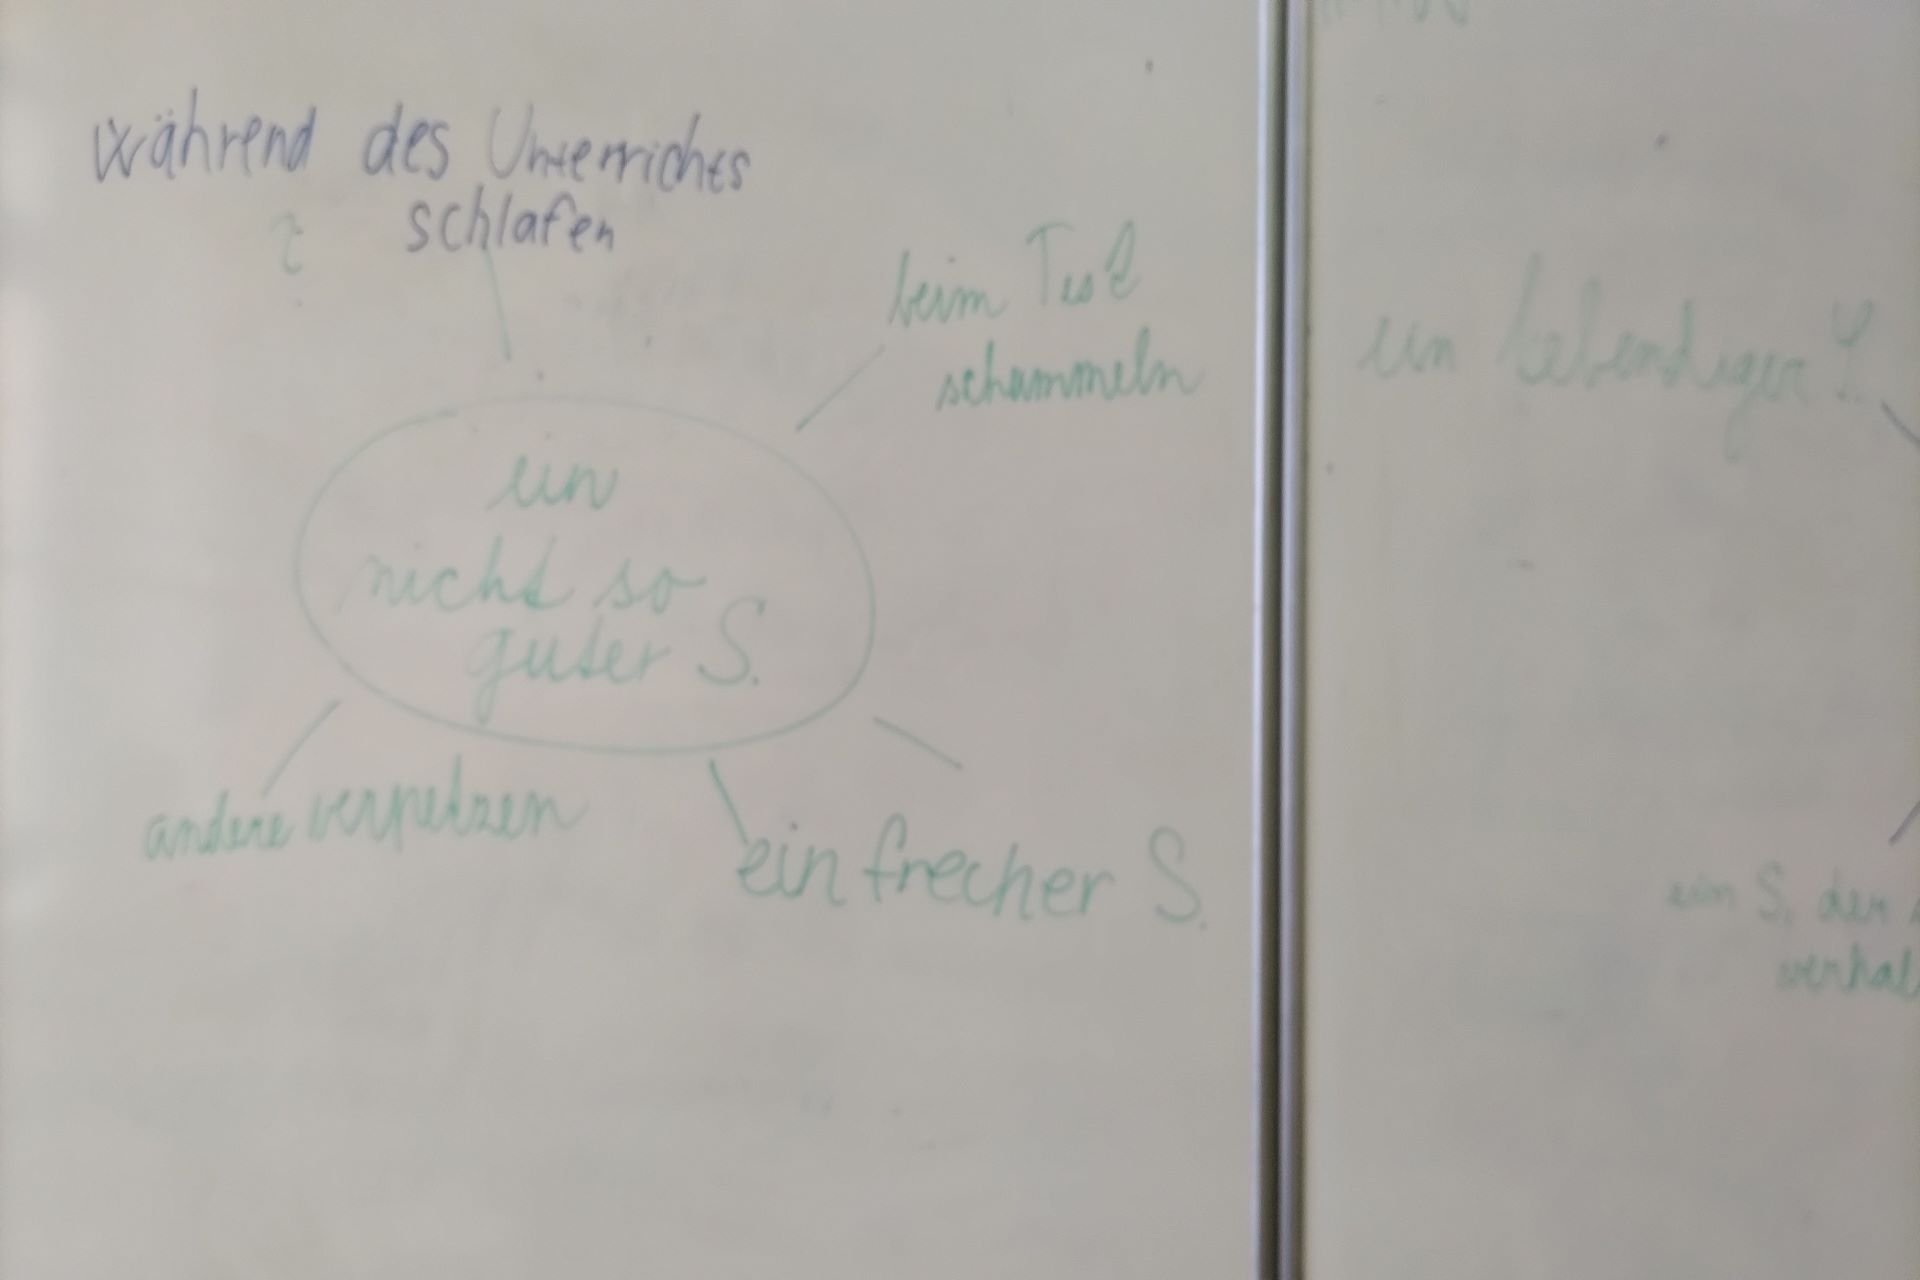 während des Unterrichts
schlafen
beim Test
schummeln
ein
nicht so
guter S.
andere verpetzen
ein frecher S.
ein lebendiger
ein S. der